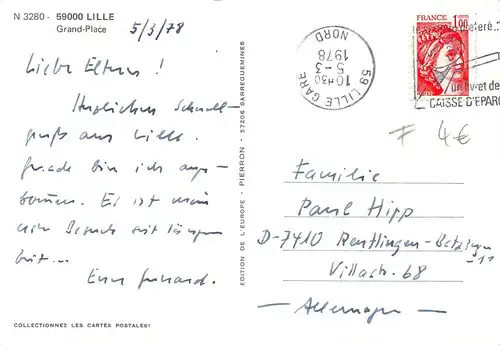 N 3280 - 59000 LILLE
Grand-Place
5/3/78
Liebe Eltern!
Herzlichen Schnell-
gruß aus Lille.
Gerade bin ich ange-
kommen. Es ist mein
Besuch seit langem
Euer
COLLECTIONNEZ LES CARTES POSTALES!
EDITION DE L'EUROPE - PIERRON - 57206 SARREGUEMINES
59 LILLE GARE
10H30
5-3
1978
NORD
FRANCE
1,00
un livret de
CAISSE D'EPAR
F 4€
Familie
Paul Hipp
D-7410 Reutlingen-Betzingen
Villach. 68
- Allemagne -